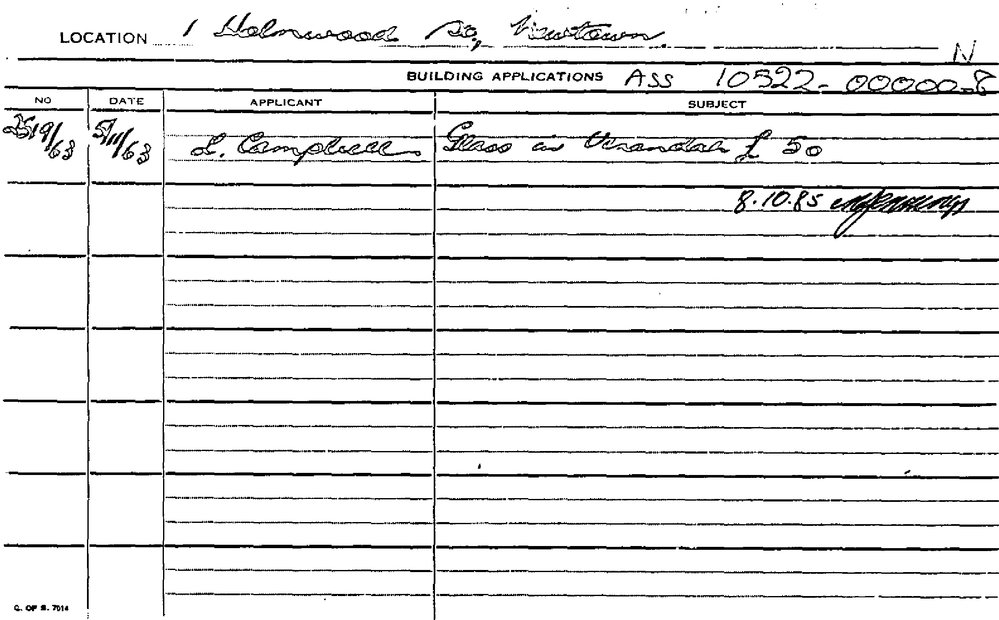 LOCATION 1 Holmwood St, Newtown. N
BUILDING APPLICATIONS ASS 10522-00000-8
NO DATE APPLICANT SUBJECT
19/63 5/11/63 L. Campbell Glass in Verandah £ 50
8.10.85
C. OF S. 7014